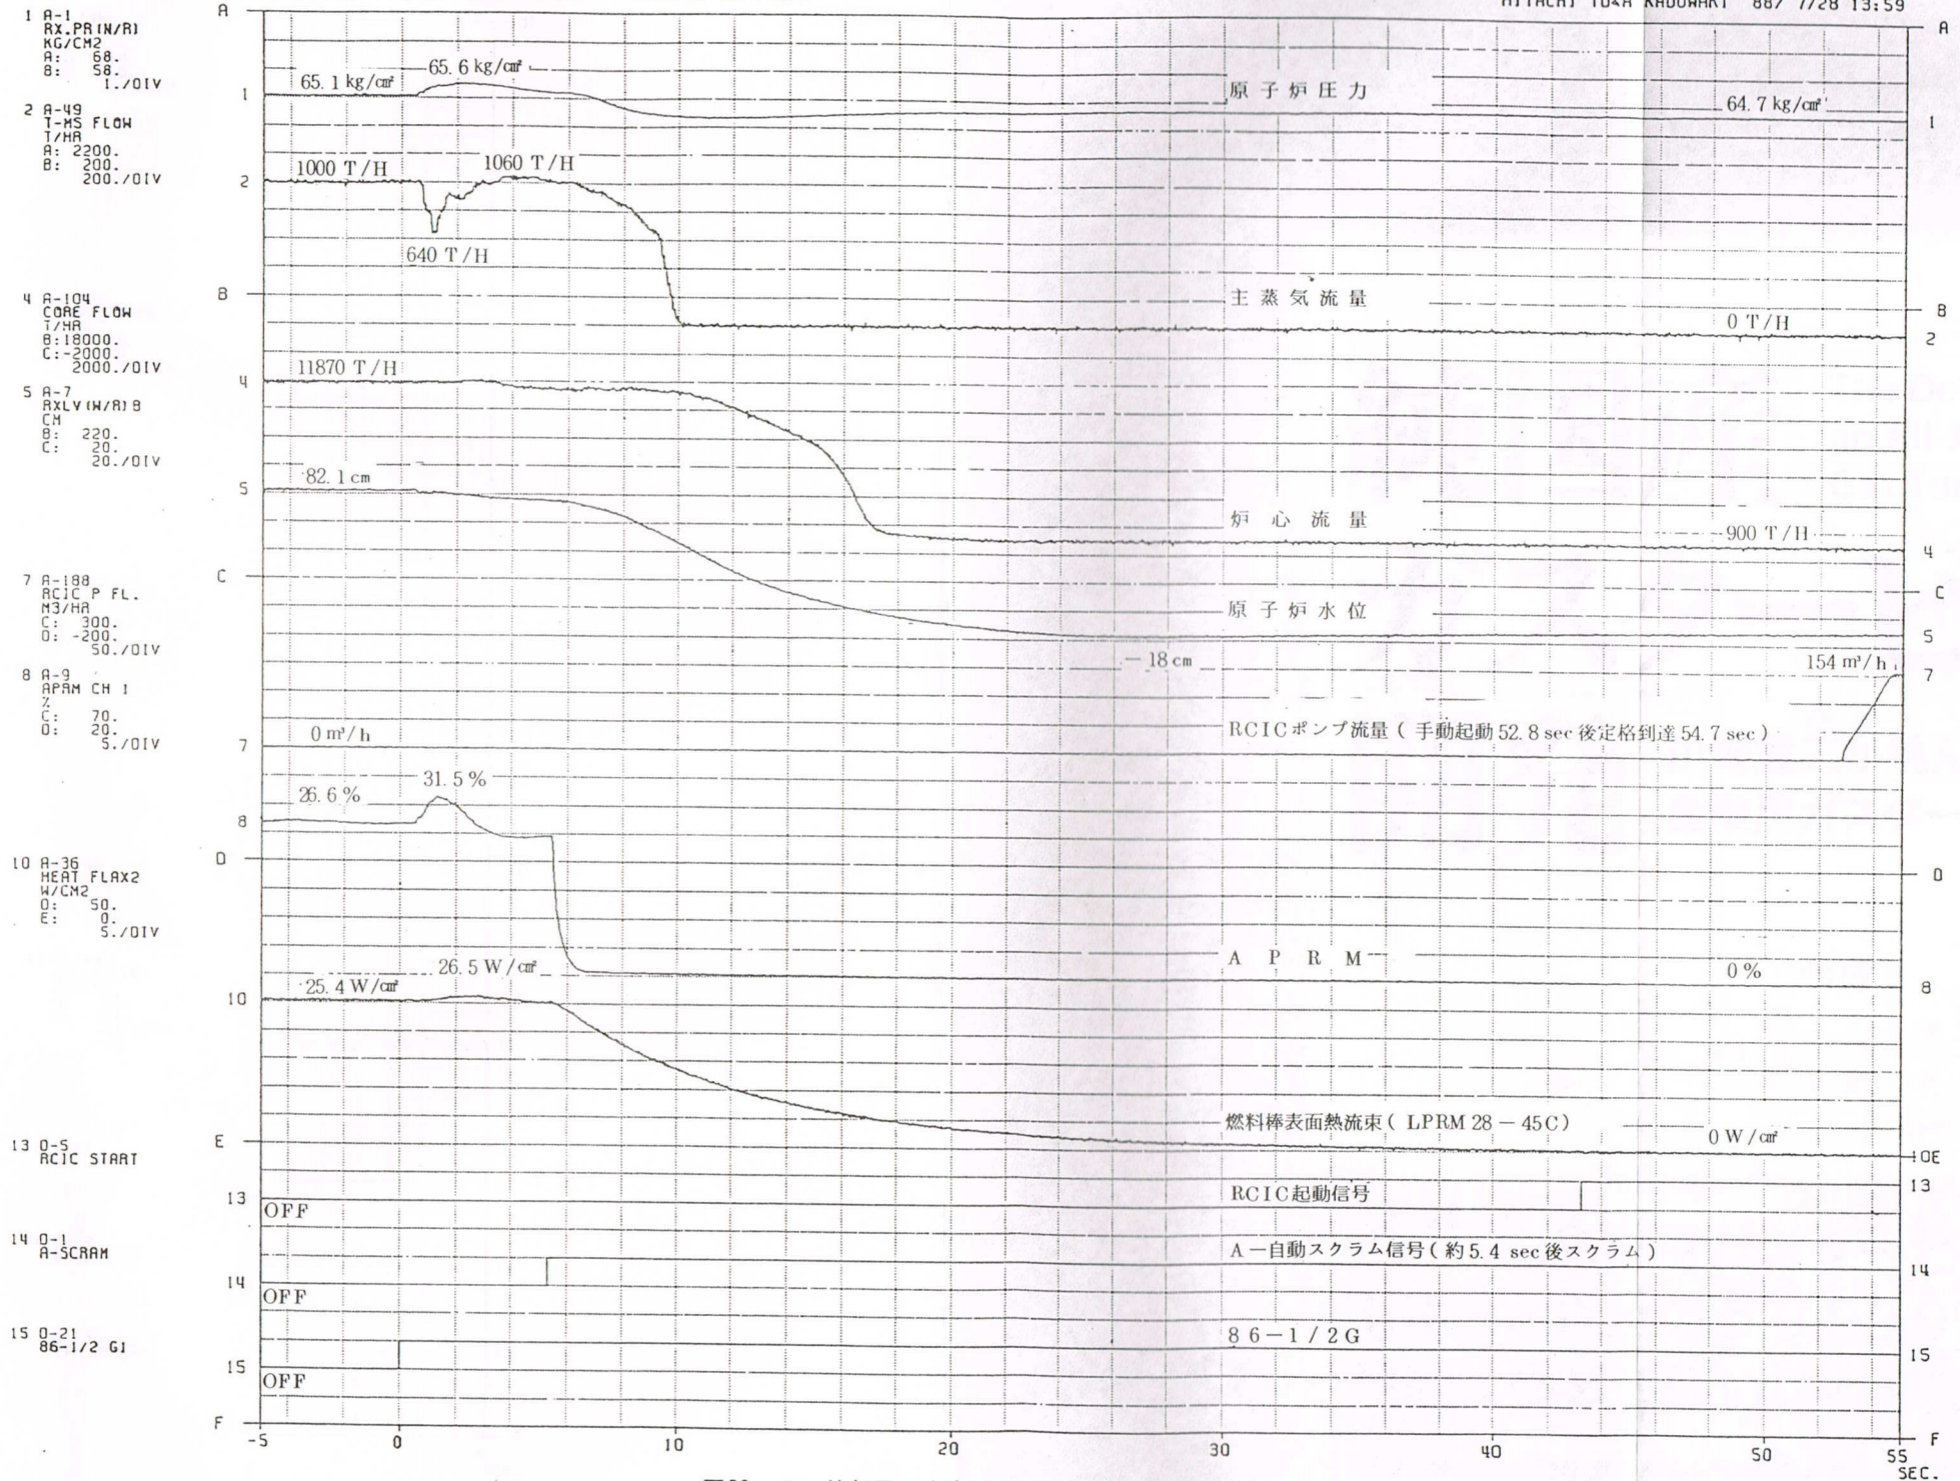 88/ 7/28 13:59
1 A-1
RX.PR(N/R)
KG/CM2
A: 68.
B: 58.
1./DIV
2 A-49
T-MS FLOW
T/HR
A: 2200.
B: 200.
200./DIV
4 A-104
CORE FLOW
T/HR
B:18000.
C:-2000.
2000./DIV
5 A-7
RXLV(W/R)B
CM
B: 220.
C: 20.
20./DIV
7 A-188
RCIC P FL.
M3/HR
C: 300.
D: -200.
50./DIV
8 A-9
APRM CH 1
%
C: 70.
D: 20.
5./DIV
10 A-36
HEAT FLAX2
W/CM2
D: 50.
E: 0.
5./DIV
13 D-5
RCIC START
14 D-1
A-SCRAM
15 D-21
86-1/2 G1
A
A
65.1 kg/cm²
65.6 kg/cm²
原子炉圧力
64.7 kg/cm²
1
1
1000 T/H
1060 T/H
640 T/H
2
B
主蒸気流量
0 T/H
B
2
11870 T/H
4
82.1 cm
5
炉心流量
900 T/H
4
C
C
原子炉水位
5
-18 cm
154 m³/h
7
0 m³/h
7
RCICポンプ流量(手動起動52.8 sec後定格到達54.7 sec)
26.6 %
31.5 %
8
D
D
APRM
0 %
8
25.4 W/cm²
26.5 W/cm²
10
燃料棒表面熱流束(LPRM 28-45C)
0 W/cm²
E
10E
13
OFF
RCIC起動信号
13
14
OFF
A-自動スクラム信号(約5.4 sec後スクラム)
14
15
OFF
86-1/2G
15
F
F
-5 0 10 20 30 40 50 55
SEC.